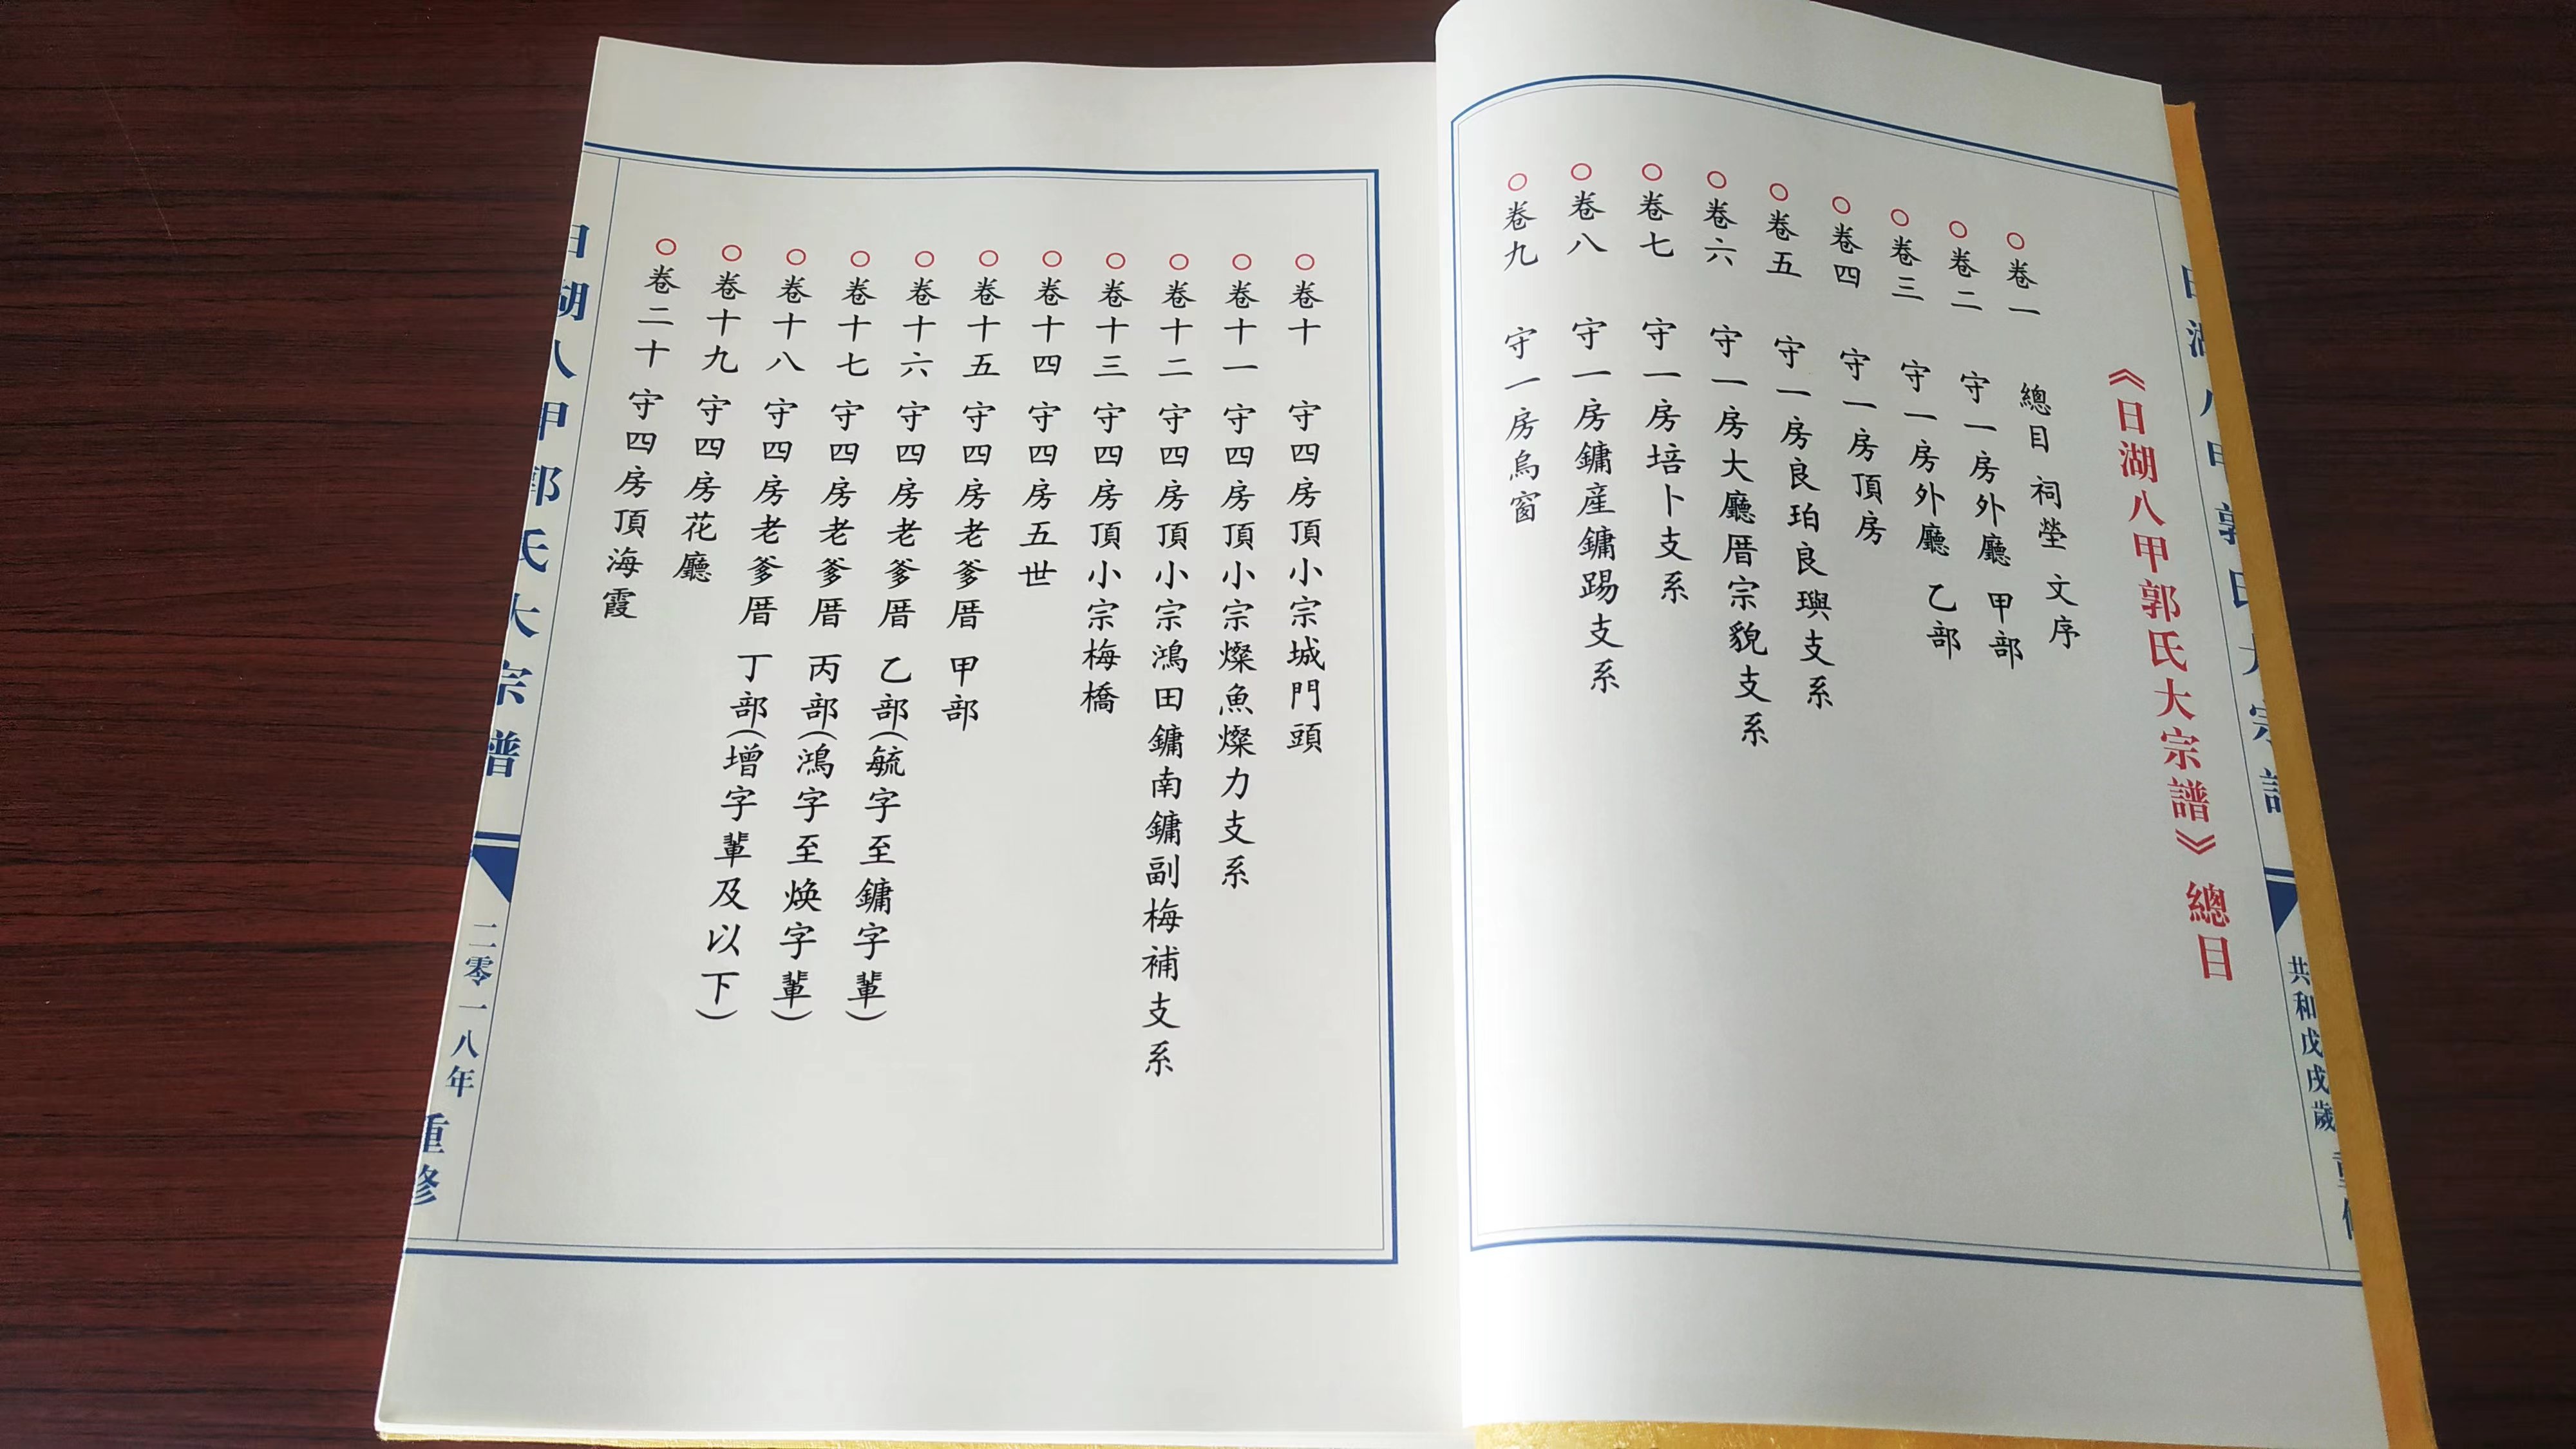 《日湖八甲郭氏大宗譜》總目
○卷一 總目 祠塋 文序
○卷二 守一房外廳 甲部
○卷三 守一房外廳 乙部
○卷四 守一房頂房
○卷五 守一房良珀良璵支系
○卷六 守一房大廳厝宗貌支系
○卷七 守一房培卜支系
○卷八 守一房鏞産鏞踢支系
○卷九 守一房烏窗
共和戊戌歲 重修
○卷十 守四房頂小宗城門頭
○卷十一 守四房頂小宗燦魚燦力支系
○卷十二 守四房頂小宗鴻田鏞南鏞副梅補支系
○卷十三 守四房頂小宗梅橋
○卷十四 守四房五世
○卷十五 守四房老爹厝 甲部
○卷十六 守四房老爹厝 乙部(毓字至鏞字輩)
○卷十七 守四房老爹厝 丙部(鴻字至焕字輩)
○卷十八 守四房老爹厝 丁部(增字輩及以下)
○卷十九 守四房花廳
○卷二十 守四房頂海霞
日湖八甲郭氏大宗譜
二零一八年 重修